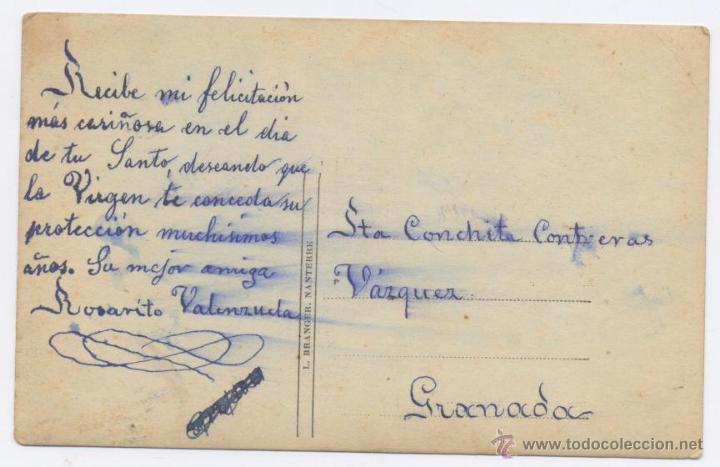 Recibe mi felicitación
más cariñosa en el dia
de tu Santo, deseando que
la Virgen te conceda su
protección muchisimos
años. Su mejor amiga
Rosarito Valenzuela
L. BRANGER. NANTERRE
Sta Conchita Contreras
Vázquez
Granada
www.todocoleccion.net